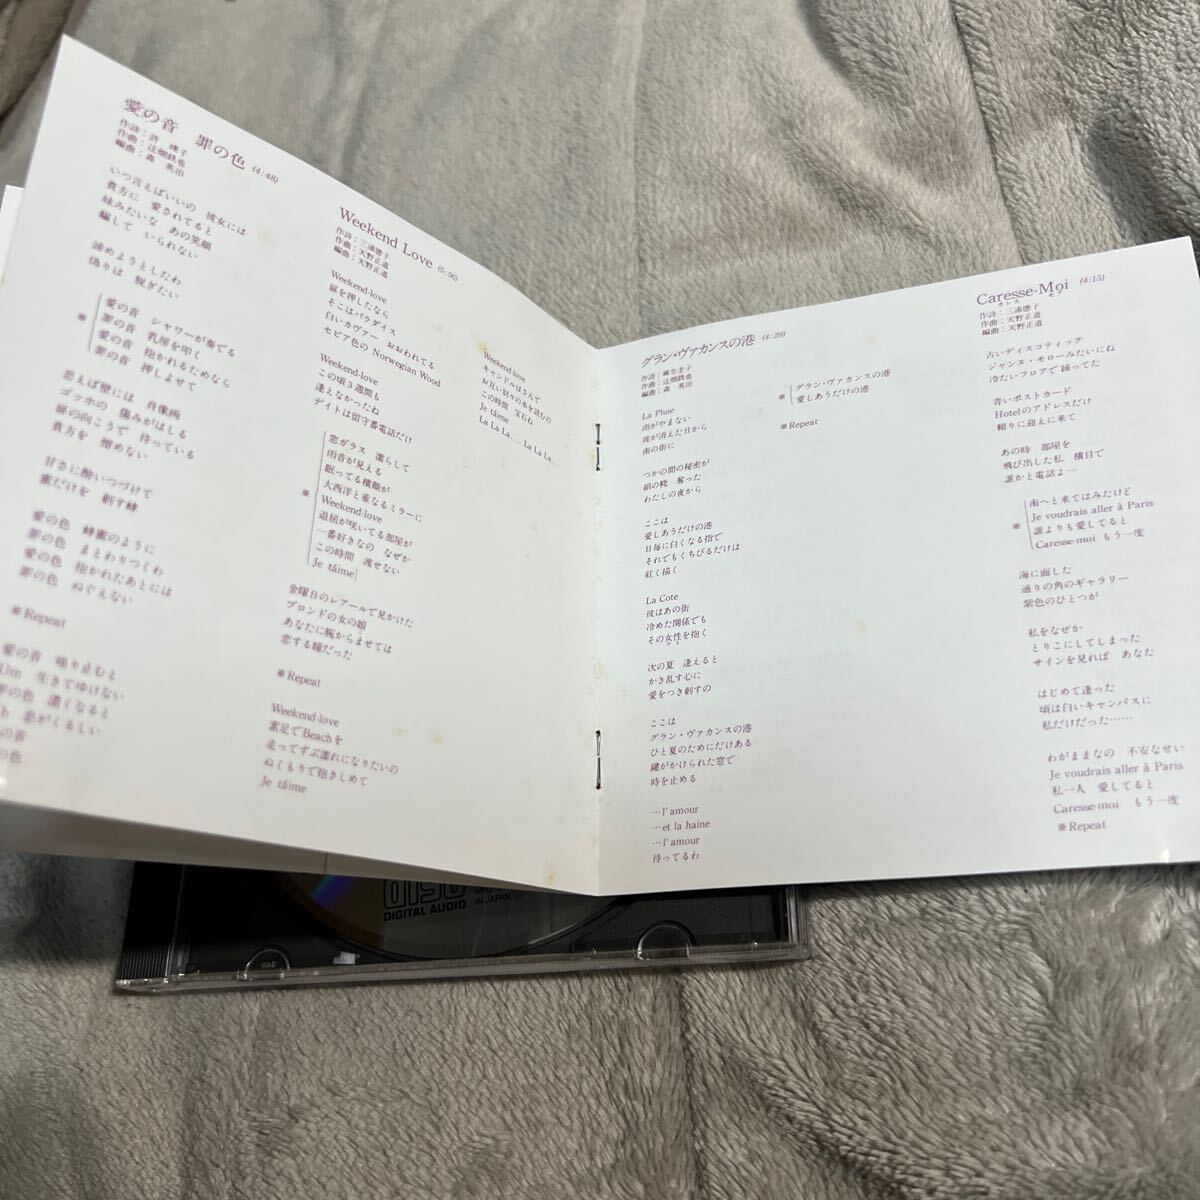 愛の音　罪の色 (4:48)
作詩：許　瑛子
作曲：辻畑鉄也
編曲：森　英治
いつ言えばいいの　彼女には
貴方に　愛されてると
妹みたいな　あの笑顔
騙して　いられない
諦めようとしたわ
偽りは　脱ぎたい
※
愛の音　シャワーが奏でる
罪の音　乳房を叩く
愛の音　抱かれるためなら
罪の音　押しよせて
思えば壁には　肖像画
ゴッホの　傷みがはしる
扉の向こうで　待っている
貴方を　憎めない
甘さに酔いつづけて
蜜だけを　刺す蜂
愛の色　蜂蜜のように
罪の色　まとわりつくわ
愛の色　抱かれたあとには
罪の色　ぬぐえない
※Repeat
愛の音　鳴り止むと
Um　生きてゆけない
罪の色　濃くなると
息がくるしい
の音
の色
Weekend Love (5:56)
作詩：三浦徳子
作曲：天野正道
編曲：天野正道
Weekend-love
扉を押したなら
そこはパラダイス
白いカヴァー　おおわれてる
セピア色の Norwegian Wood
Weekend-love
この頃3週間も
逢えなかったね
デイトは留守番電話だけ
※
窓ガラス　濡らして
雨音が見える
眠ってる横顔が
大西洋と重なるミラーに
Weekend-love
退屈が咲いてる部屋が
一番好きなの　なぜか
この時間　渡せない
Je táime
金曜日のレアールで見かけた
ブロンドの女の娘
あなたに腕からませては
恋する瞳だった
※Repeat
Weekend-love
素足でBeachを
走ってずぶ濡れになりたいの
ぬくもりで抱きしめて
Je táime
Weekend love
キャンドルはさんで
お互い別々の本を読むの
この時間　宝石ね
Je táime
La La La…… La La La……
グラン・ヴァカンスの港 (4:29)
作詩：麻生圭子
作曲：辻畑鉄也
編曲：森　英治
La Pluie
雨がやまない
彼が消えた日から
南の街に
つかの間の秘密が
絹の靴　奪った
わたしの夜から
ここは
愛しあうだけの港
日毎に白くなる指で
それでもくちびるだけは
紅く描く
La Cote
彼はあの街
冷めた関係でも
その女性を抱く
ひと
次の夏　逢えると
かき乱す心に
愛をつき刺すの
ここは
グラン・ヴァカンスの港
ひと夏のためにだけある
鍵がかけられた窓で
時を止める
…l' amour
…et la haine
…l' amour
待ってるわ
※
グラン・ヴァカンスの港
愛しあうだけの港
※Repeat
Caresse-Moi (4:15)
カレス　モア
作詩：三浦徳子
作曲：天野正道
編曲：天野正道
古いディスコティック
ジャンヌ・モローみたいにね
冷たいフロアで　踊ってた
青いポストカード
Hotelのアドレスだけ
頼りに迎えに来て
あの時　部屋を
飛び出した私　横目で
誰かと電話よ…
※
南へと来てはみたけど
Je voudrais aller à Paris
誰よりも愛してると
Caresse-moi　もう一度
海に面した
通りの角のギャラリー
紫色のひとつが
私をなぜか
とりこにしてしまった
サインを見れば　あなた
はじめて逢った
頃は白いキャンバスに
私だけだった……
わがままなの　不安なせい
Je voudrais aller à Paris
私一人　愛してると
Caresse-moi　もう一度
※Repeat
DIGITAL AUDIO
IN JAPAN